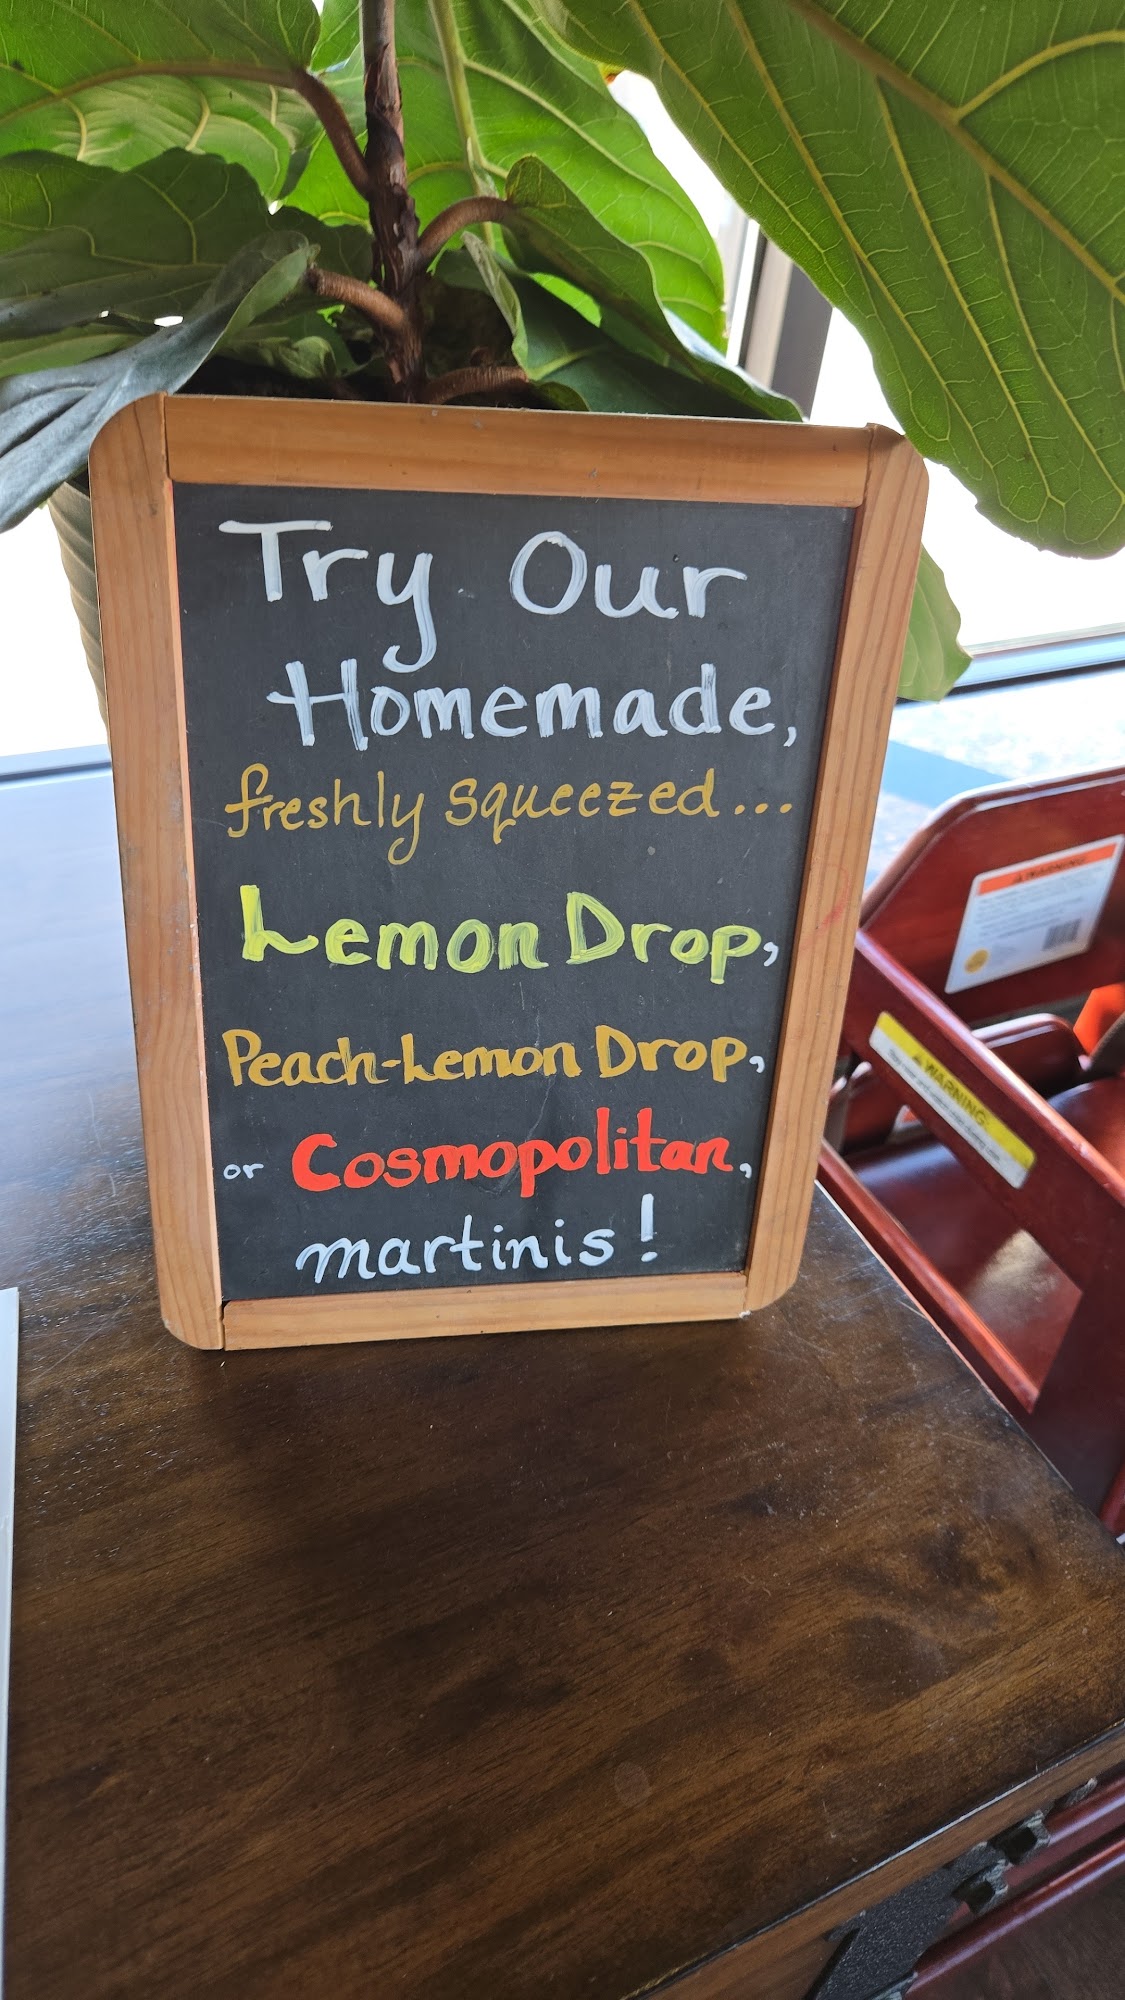 Try Our
Homemade,
freshly squeezed...
Lemon Drop,
Peach-Lemon Drop,
or Cosmopolitan,
martinis!
WARNING
WARNING: